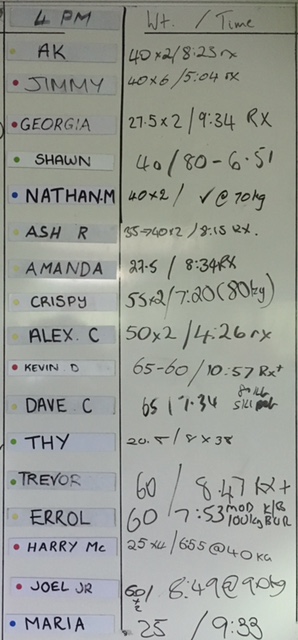 4 PM Wt. / Time
AK 40x2/8:25 rx
JIMMY 40x6/5:04 rx
GEORGIA 27.5x2/9:34 RX
SHAWN 40/80-6.51
NATHAN.M 40x2/ ✓@70kg
ASH R 35→40x2/8:15 RX.
AMANDA 27.5/8:34RX
CRISPY 55x2/7:20(80kg)
ALEX. C 50x2/4:26 rx
KEVIN D 65-60/10:57 RX+
DAVE C 65/7.34
THY 20.5/8x38
TREVOR 60/8.47 RX+
ERROL 60 7:53 MOD K/B 100kg BUR
HARRY Mc 25x4/655@40KG
JOEL JR 60x2/8:49@90kg
MARIA 25/9:33